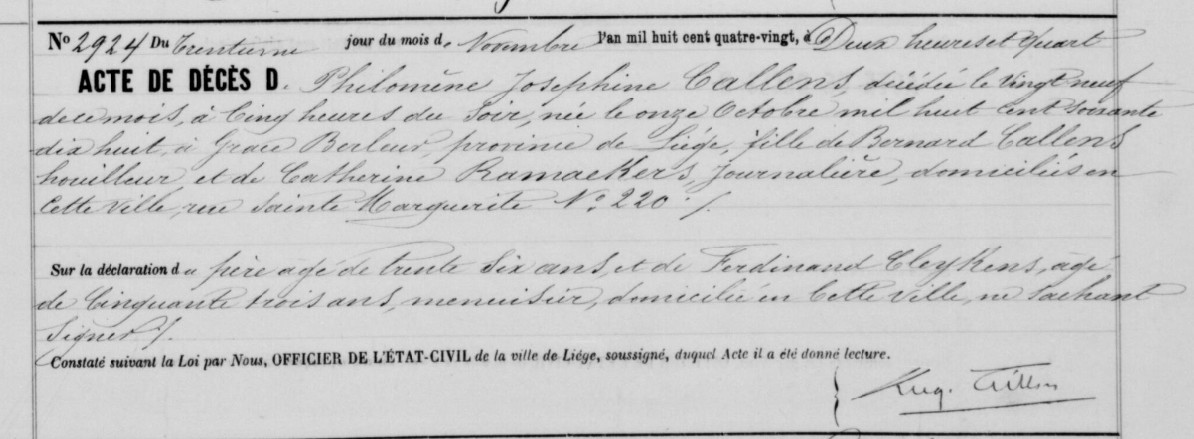 No 2924 Du trentième jour du mois de Novembre l'an mil huit cent quatre-vingt, à Deux heures et quart
ACTE DE DÉCÈS D. Philomène Josephine Callens, décédée le vingt neuf
de ce mois, à Cinq heures du Soir, née le onze Octobre mil huit cent soixante
dix huit, à Grace Berleur, province de Liége, fille de Bernard Callens
houilleur, et de Catherine Ramaekers, Journalière, domiciliés en
Cette Ville, rue Sainte Marguerite No 220 ./.
Sur la déclaration du père âgé de trente six ans, et de Ferdinand Cleykens, âgé
de Cinquante trois ans, menuisier, domicilié en Cette Ville, ne Sachant
Signer ./.
Constaté suivant la Loi par Nous, OFFICIER DE L'ÉTAT-CIVIL de la ville de Liége, soussigné, duquel Acte il a été donné lecture.